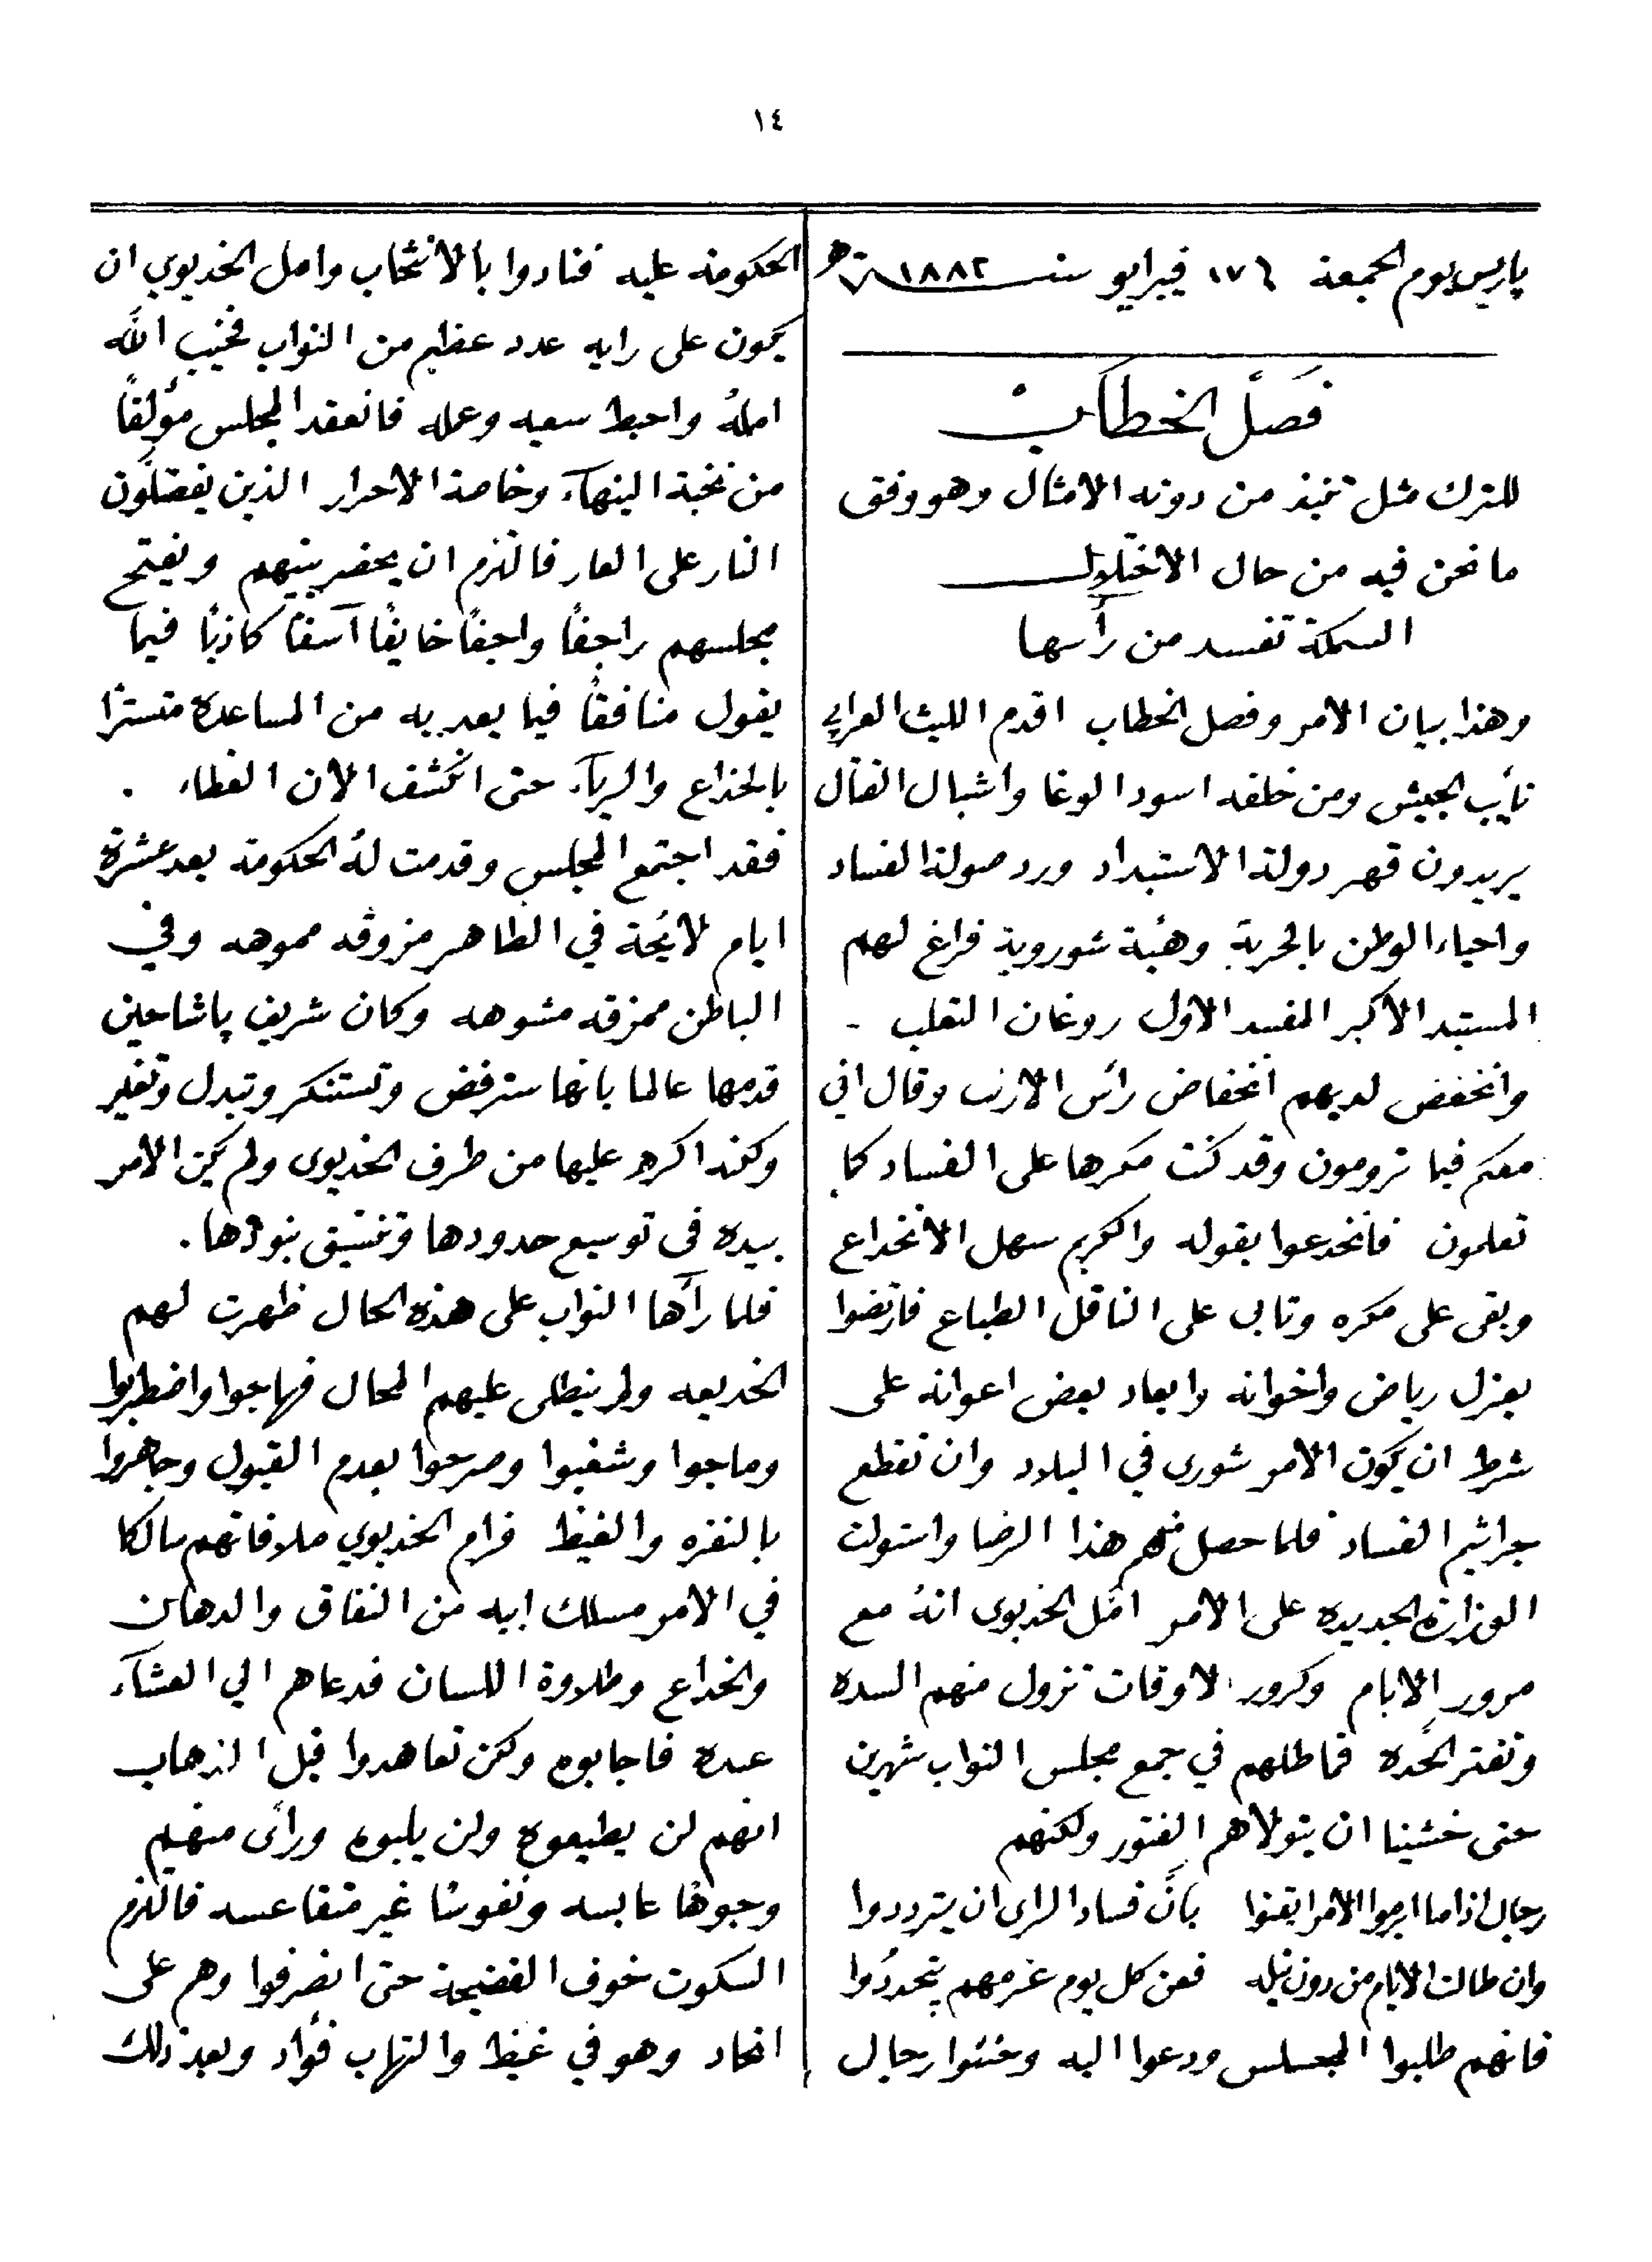 ١٤
پاريس يوم الجمعة ١٧ فيبرايو سنة ١٨٨٢
فصل الخطاب
للترك مثل تنبذ من دونه الامثال وهو وفق
ما نحن فيه من حال الاختلال
السمكة تفسد من رأسها
وهذا بيان الامر وفصل الخطاب اقدم الليث العرابي
نائب الجيش ومن خلفه اسود الوغا واشبال القتال
يريدون قهر دولة الاستبداد ورد صولة الفساد
واحياء الوطن بالحرية وهيئة شوروية فراغ لهم
المستبد الاكبر المفسد الاول روغان الثعلب -
وانخفض لديهم انخفاض رأس الارنب وقال اني
معكم فيما ترومون وقد كنت مكرها على الفساد كما
تعلمون فانخدعوا بقوله والكريم سهل الانخداع
وبقى على مكره وتابى على الناقل الطباع فارتضوا
بعزل رياض واخوانه وابعاد بعض اعوانه على
شرط ان يكون الامر شورى في البلاد وان تقطع
جراثيم الفساد فلما حصل منهم هذا الرضا واستولت
الوزارة الجديده على الامر امّل الخديوى انهُ مع
مرور الايام وكرور الاوقات تزول منهم السده
وتفتر الحدّه فماطلهم في جمع مجلس النواب شهرين
حتى خشينا ان يتولاهم الفتور ولكنهم
رجال اذا ما ابرموا الامر ايقنوا بانَّ فساد الراى ان يترددوا
وان طالت الايام من دون نيله ففى كل يوم عزمهم يتجددُوا
فانهم طلبوا المجلس ودعوا اليه وخشوا رجال
الحكومة عليه فنادوا بالانتخاب وامل الخديوي ان
يكون على رايه عدد عظيم من النواب فخيب الله
املهُ واحبط سعيه وعمله فانعقد المجلس مؤلفًا
من نخبة النبهآء وخاصة الاحرار الذين يفضلّون
النار على العار فالتزم ان يحضر بينهم ويفتح
مجلسهم راجفًا واجفًا خايفًا آسفًا كاذبًا فيما
يقول منافقًا فيما يعد به من المساعدة متسترًا
بالخداع والريآء حتى انكشف الان الغطاء .
فقد اجتمع المجلس وقدمت لهُ الحكومة بعد عشرة
ايام لائحة في الظاهر مزوقه مموهه وفي
الباطن ممزقه مشوهه وكان شريف پاشا حين
قدمها عالما بانها سترفض وتستنكر وتبدل وتغير
ولكنه اكره عليها من طرف الخديوى ولم يكن الامر
بيده فى توسيع حدودها وتنسيق بنودها .
فلما رأها النواب على هذه الحال ظهرت لهم
الخديعه ولم ينطلى عليهم المحال فهاجوا واضطربوا
وماجوا وشغبوا وصرحوا بعدم القبول وجاهروا
بالنفره والغيظ فرام الخديوي ملاقاتهم سالكا
في الامر مسلك ابيه من النفاق والدهان
والخداع وطلاوة اللسان فدعاهم الي العشآء
عنده فاجابوه ولكن تعاهدوا قبل الذهاب
انهم لن يطيعوه ولن يلبوه ورأى منهم
وجوهًا عابسه ونفوسًا غير متقاعسه فالتزم
السكوت خوف الفضيحة حتى انصرفوا وهم على
اتحاد وهو في غيظ والتهاب فؤاد وبعد ذلك